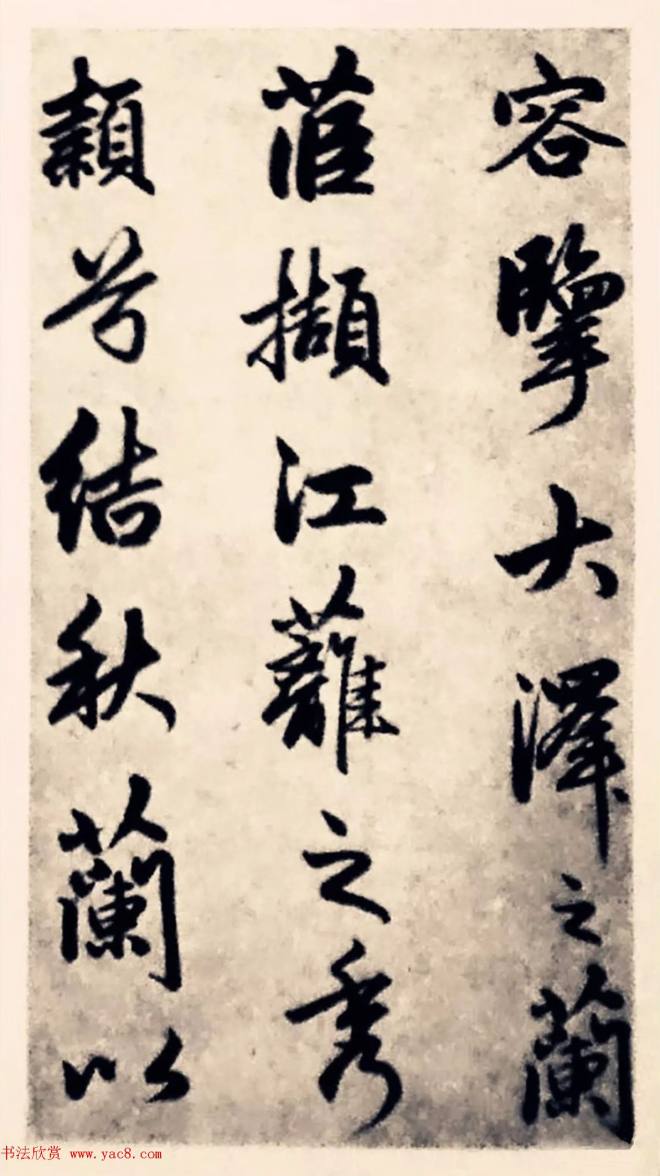 容擥大泽之蘭
茝擷江蘺之秀
穎兮結秋蘭以
书法欣赏 www.yac8.com